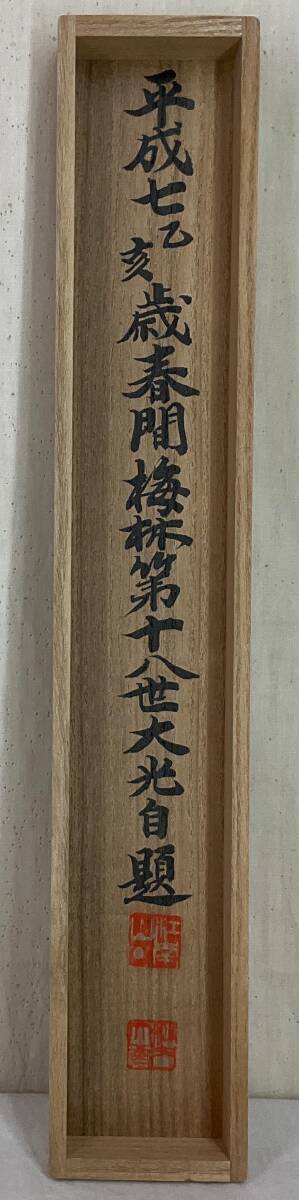 平成七乙亥歳春閒梅林第十八世大兆自題